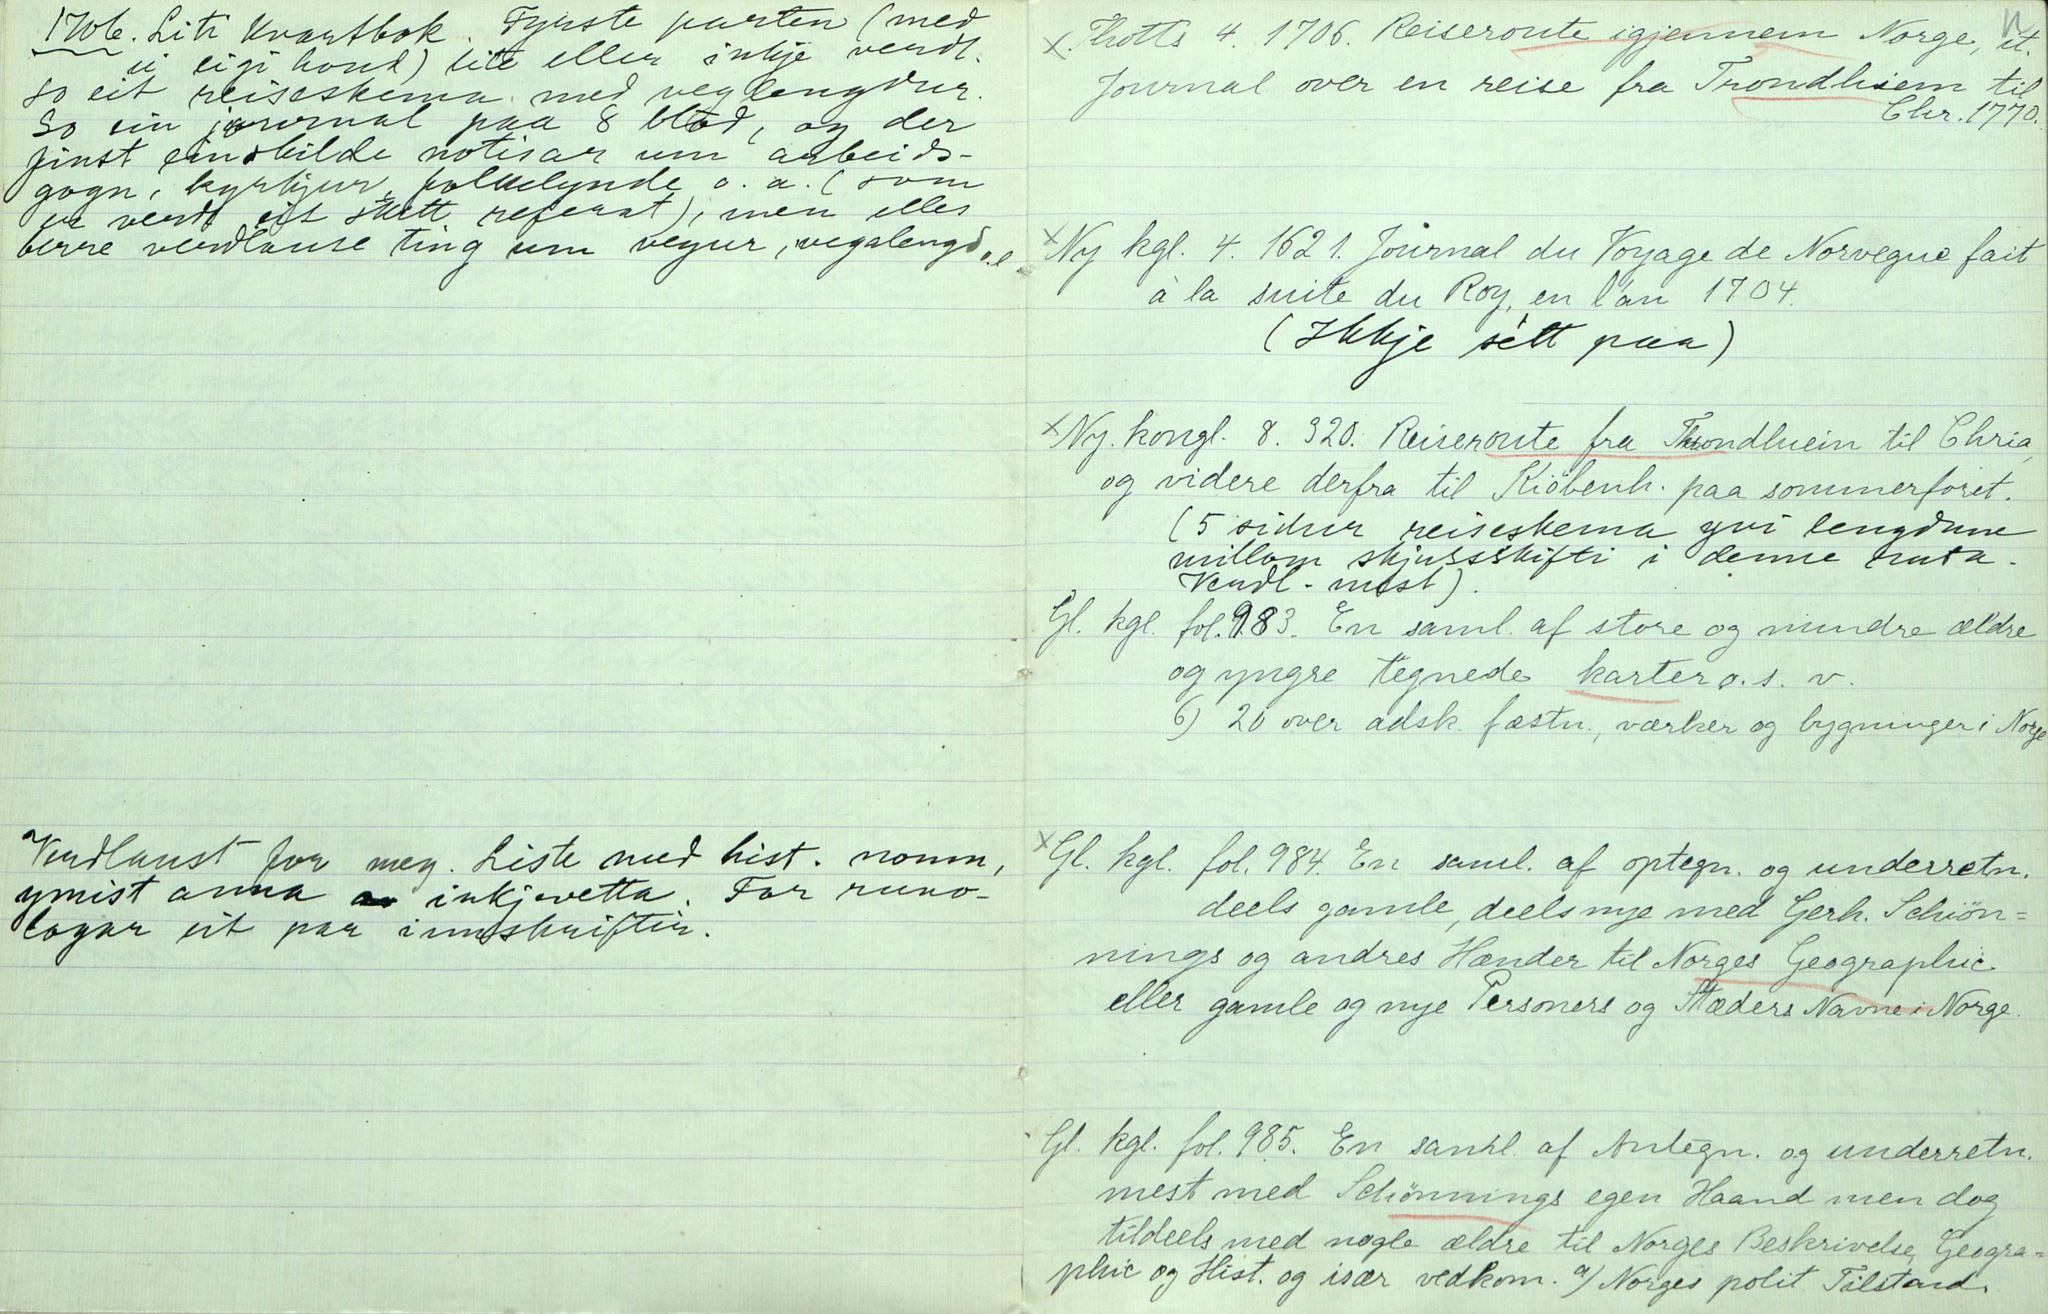 1706. Liti Kvartbok. Fyrste parten (med
ei eigi hond) lite eller inkje verdt.
So eit reiseskema med veglengdur.
So ein journal paa 8 blad, og der
finst einskilde notisar um arbeids-
gogn, kyrkjur, folkelynde o. a. (som
er verdt eit stutt referat), men elles
berre verdlause ting um vegur, vegalengd o.l
Verdlaust for meg. Liste med hist. namn,
ymist anna inkjevetta. For runo-
logar eit par innskriftir.
x Thotts 4. 1706. Reiseroute igjennem Norge, it.
Journal over en reise fra Trondhiem til
Chr. 1770.
x Ny kgl. 4. 1621. Journal du Voyage de Norvegue fait
à la suite du Roy, en l'an 1704.
(Ikkje sétt paa)
x Ny. kongl. 8. 320. Reiseroute fra Throndhiem til Chria,
og videre derfra til Kiöbenh. paa sommerføret.
(5 sidur reiseskema yvi lengdune
millom skjussskifti i denne ruta.
Verdl-mest).
Gl. kgl. fol. 983. En saml. af store og mindre ældre
og yngre tegnede karter o. s. v.
6) 20 over adsk. fæstn., værker og bygninger i Norge
x Gl. kgl. fol. 984. En saml. af optegn. og underretn.
deels gamle, deels nye med Gerh. Schiön=
nings og andres Hænder til Norges Geographie
eller gamle og nye Personers og Stæders Navne i Norge.
Gl. kgl. fol. 985. En saml. af Antegn. og underretn.
mest med Schönnings egen Haand men dog
tildeels med nogle ældre til Norges Beskrivelse, Geogra=
phie og Hist. og især vedkom. a) Norges polit Tilstand.